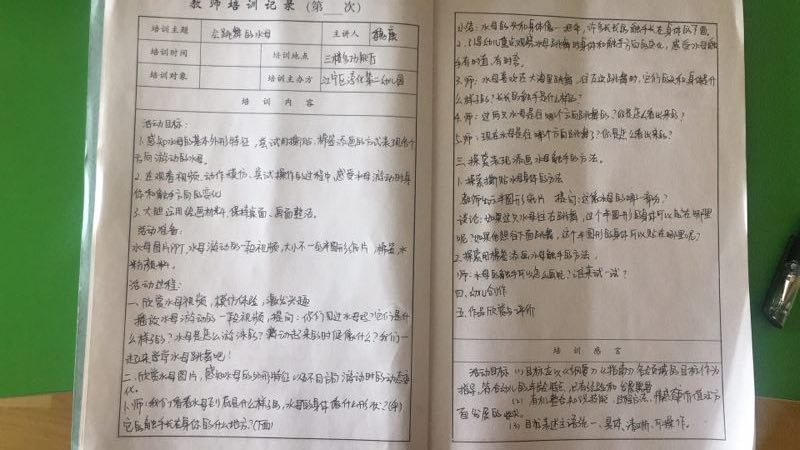 教师培训记录（第 次）
培训主题 会跳舞的水母 主讲人
培训时间 培训地点 三楼多功能厅
培训对象 培训主办方 江宁区湾化第二幼儿园
培训内容
活动目标：
1. 感知水母的基本外形特征，尝试用撕贴、棉签添画的方式来现各个
方向游动的水母。
2. 在观看视频、动作模仿、尝试操作的过程中，感受水母游动时身
体和触手方向的变化
3. 大胆运用绘画材料，保持桌面、画面整洁。
活动准备：
水母图片PPT，水母游动的一段视频，大小不一的半圆形纸片，棉签，水
粉颜料。
活动过程：
一、欣赏水母视频，模仿体验，激发兴趣
播放水母游动的一段视频，提问：你们见过水母吗？它们是什
么样子的？水母是怎么游泳的？舞动起来的时候像什么？我们一
起来学学水母跳舞吧！
二、欣赏水母图片，感知水母的外形特征以及不同方向游动时的动态变
化。
1. 师：我们看看水母到底是什么样子的，水母的身体像什么形状？（伞）
它的触手长在身体的什么地方？（下面）
小结：水母的头和身体像一把伞，许多长长的触手长在身体的下面。
2. 引导幼儿重点观察水母跳舞时身体和触手方向的变化，感受水母触
手有时直，有时弯。
3. 师：水母喜欢在大海里跳舞，往左边跳舞时，它们的头和身体是什
么样的？长长的触手是什么样？
4. 师：这两只水母是往哪个方向跳舞的？你是怎么看出来的？
5. 师：现在水母是往哪个方向跳舞了？你是怎么看出来的？
三、探索表现添画水母触手的方法。
1. 探索撕贴水母身体的方法
教师出示半圆形纸片 提问：这像水母的哪一部分？
谈论：如果这只水母往右跳舞，这个半圆形的身体可以贴在哪里
呢？如果他想往下面跳舞，这个半圆形的身体可以贴在哪里呢？
2. 探索用棉签添画水母触手的方法。
师：水母的触手可以怎么画呢？谁来试一试？
四、幼儿创作
五、作品欣赏与评价
培训感言
活动目标（1）目标应以《纲要》《指南》各领域的目标作为
指导，符合幼儿的年龄特征、已有经验和发展需要
（2）有机整合知识技能、过程方法、情感态度价值这方
面发展的要求。
（3）目标表述主语统一、具体、清晰、可操作。